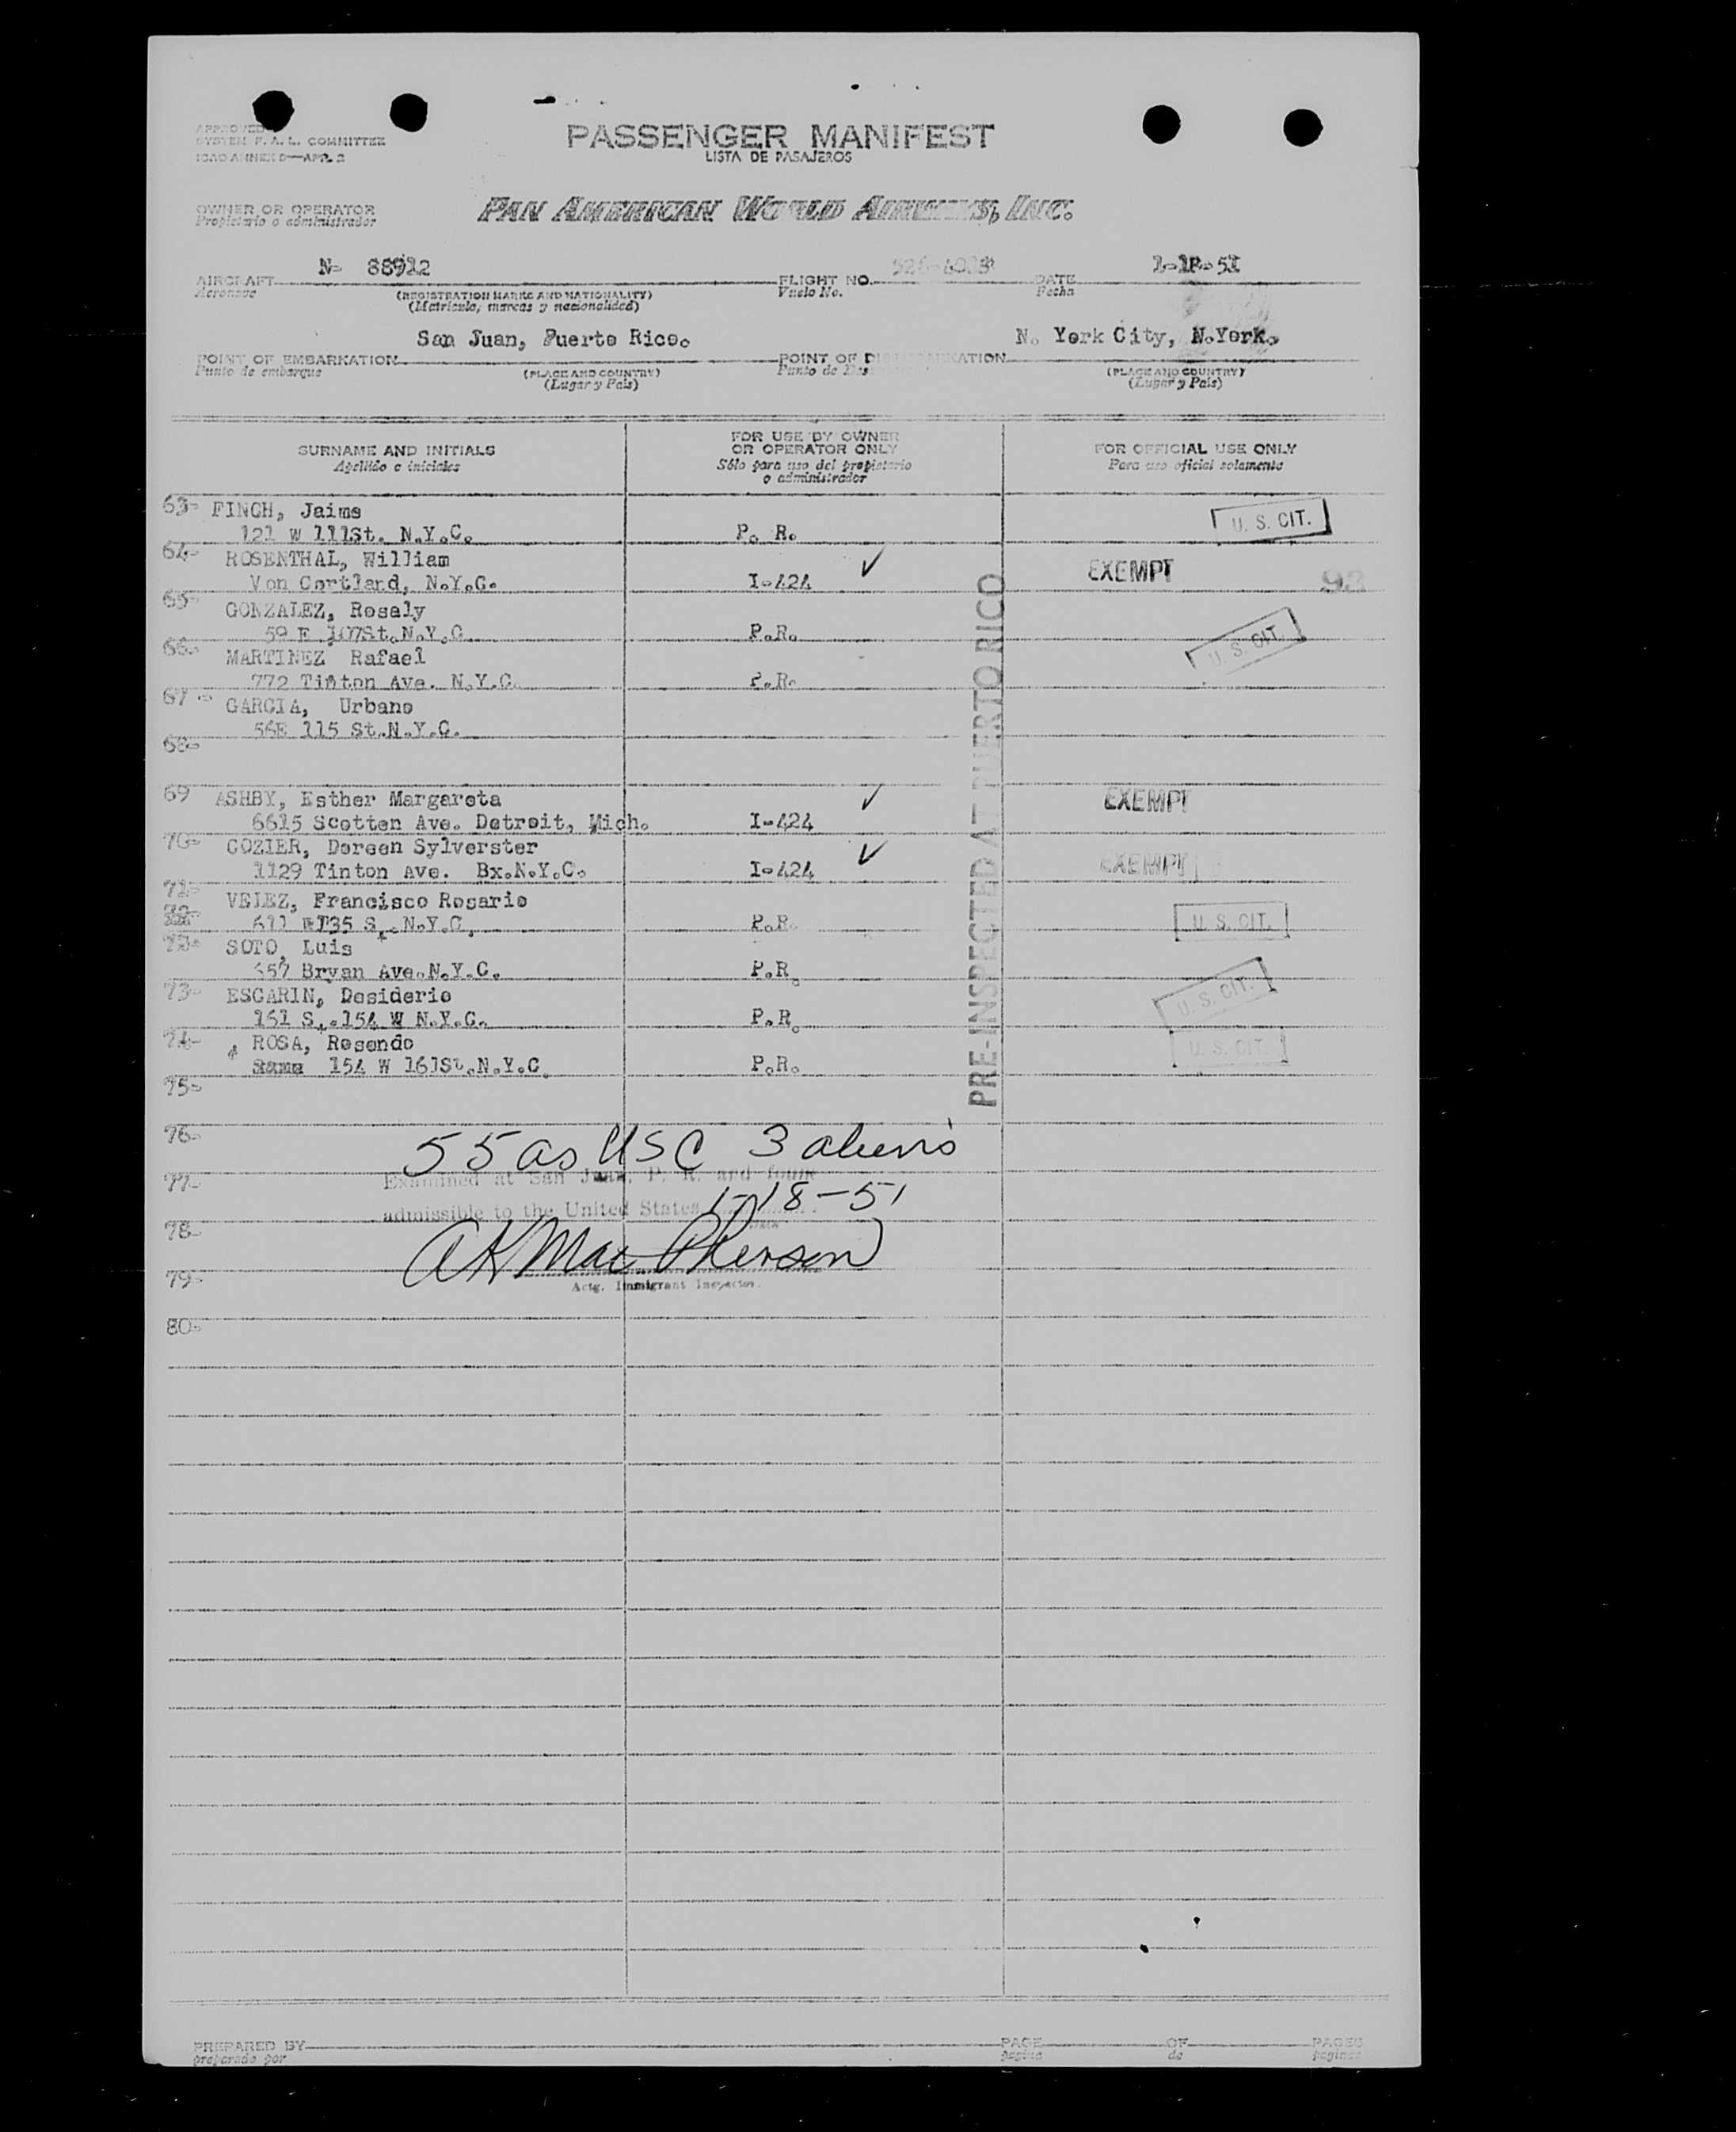 APPROVED
SYSTEM F. A. L. COMMITTEE
ICAO ANNEX 9—APP. 2
PASSENGER MANIFEST
LISTA DE PASAJEROS
OWNER OR OPERATOR
Propietario o administrador
PAN AMERICAN WORLD AIRWAYS, INC.
AIRCRAFT N- 88912 FLIGHT NO. DATE 1-18-51
Aeronave (REGISTRATION MARKS AND NATIONALITY) Vuelo No. Fecha
(Matricula, marcas y nacionalidad)
San Juan, Puerto Rico. N. York City, N.York.
POINT OF EMBARKATION POINT OF
Punto de embarque (PLACE AND COUNTRY) Punto de (PLACE AND COUNTRY)
(Lugar y Pais) (Lugar y Pais)
SURNAME AND INITIALS FOR USE BY OWNER OR OPERATOR ONLY FOR OFFICIAL USE ONLY
Apellido e iniciales Sólo para uso del propietario o administrador Para uso oficial solamente
63- FINCH, Jaime U. S. CIT.
121 W 111St. N.Y.C. P. R.
64- ROSENTHAL, William ✓ EXEMPT 93
Von Cortland, N.Y.C. I-424
65- GONZALEZ, Rosaly
59 E 107St.N.Y.C P.R. U. S. CIT.
66- MARTINEZ Rafael
772 Tinton Ave. N.Y.C. P.R.
67- GARCIA, Urbano
56E 115 St.N.Y.C.
68-
69 ASHBY, Esther Margareta ✓ EXEMPT
6615 Scotten Ave. Detroit, Mich. I-424
70- COZIER, Doreen Sylverster ✓ EXEMPT
1129 Tinton Ave. Bx.N.Y.C. I-424
71- VELEZ, Francisco Rosario
611 W135 St.N.Y.C. P.R. U. S. CIT.
SOTO, Luis
Bryan Ave.N.Y.C. P.R.
73- ESCARIN, Desiderio U. S. CIT.
161 St.154 W N.Y.C. P.R.
74- ROSA, Rosendo U. S. CIT.
154 W 161St.N.Y.C. P.R.
75-
PRE-INSPECTED AT PUERTO RICO
76-
55 as USC 3 aliens
77- Examined at San Juan, P. R. and found
admissible to the United States 1-18-51
78- Date
AK MacPherson
79- Actg. Immigrant Inspector.
80-
PREPARED BY PAGE OF PAGES
preparado por pagina de paginas